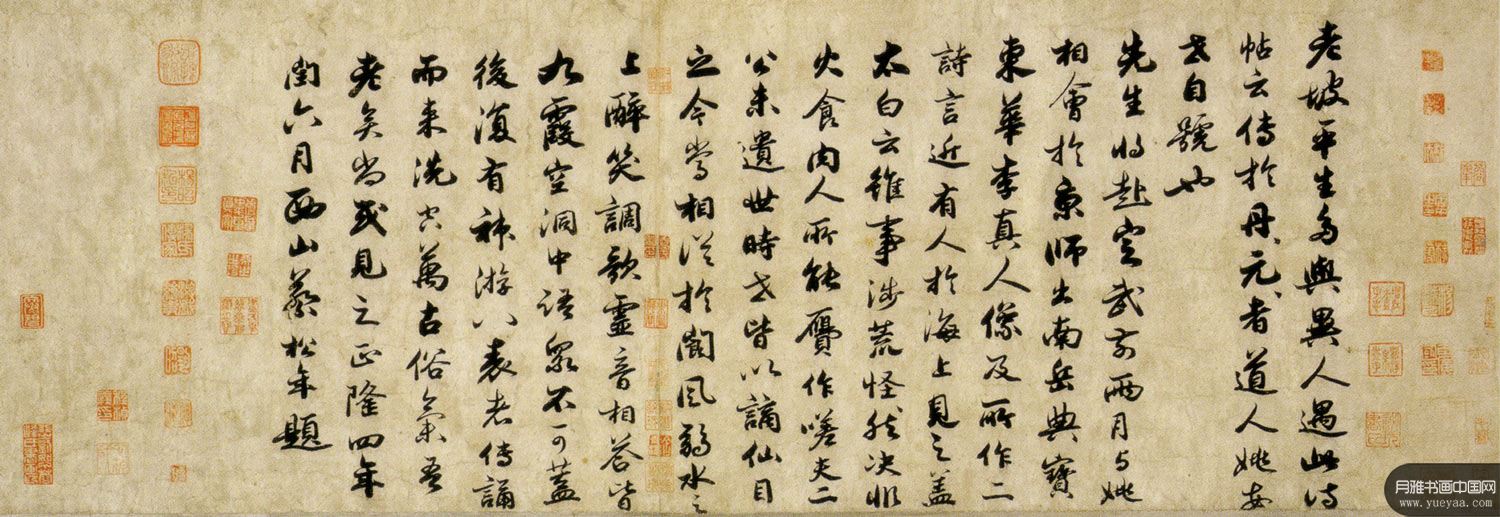 老坡平生多與異人遇此詩
帖云傳於丹元者道人姚安
世自號也
先生將赴定武前兩月與姚
相會於京師出南岳典寶
東華李真人像及所作二
詩言近有人於海上見之蓋
太白云雖事涉荒怪然決非
火食肉人所能贗作嗟夫二
公未遺世時世皆以謫仙目
之今當相從於閬風弱水之
上醉笑調歌靈音相答皆
九霞空洞中語不可蓋
後復有神游八表者傳誦
而來洗空萬古俗氣吾
老矣尚或見之正隆四年
閏六月西山蔡松年題
月雅书画中国网
www.yueyaa.com